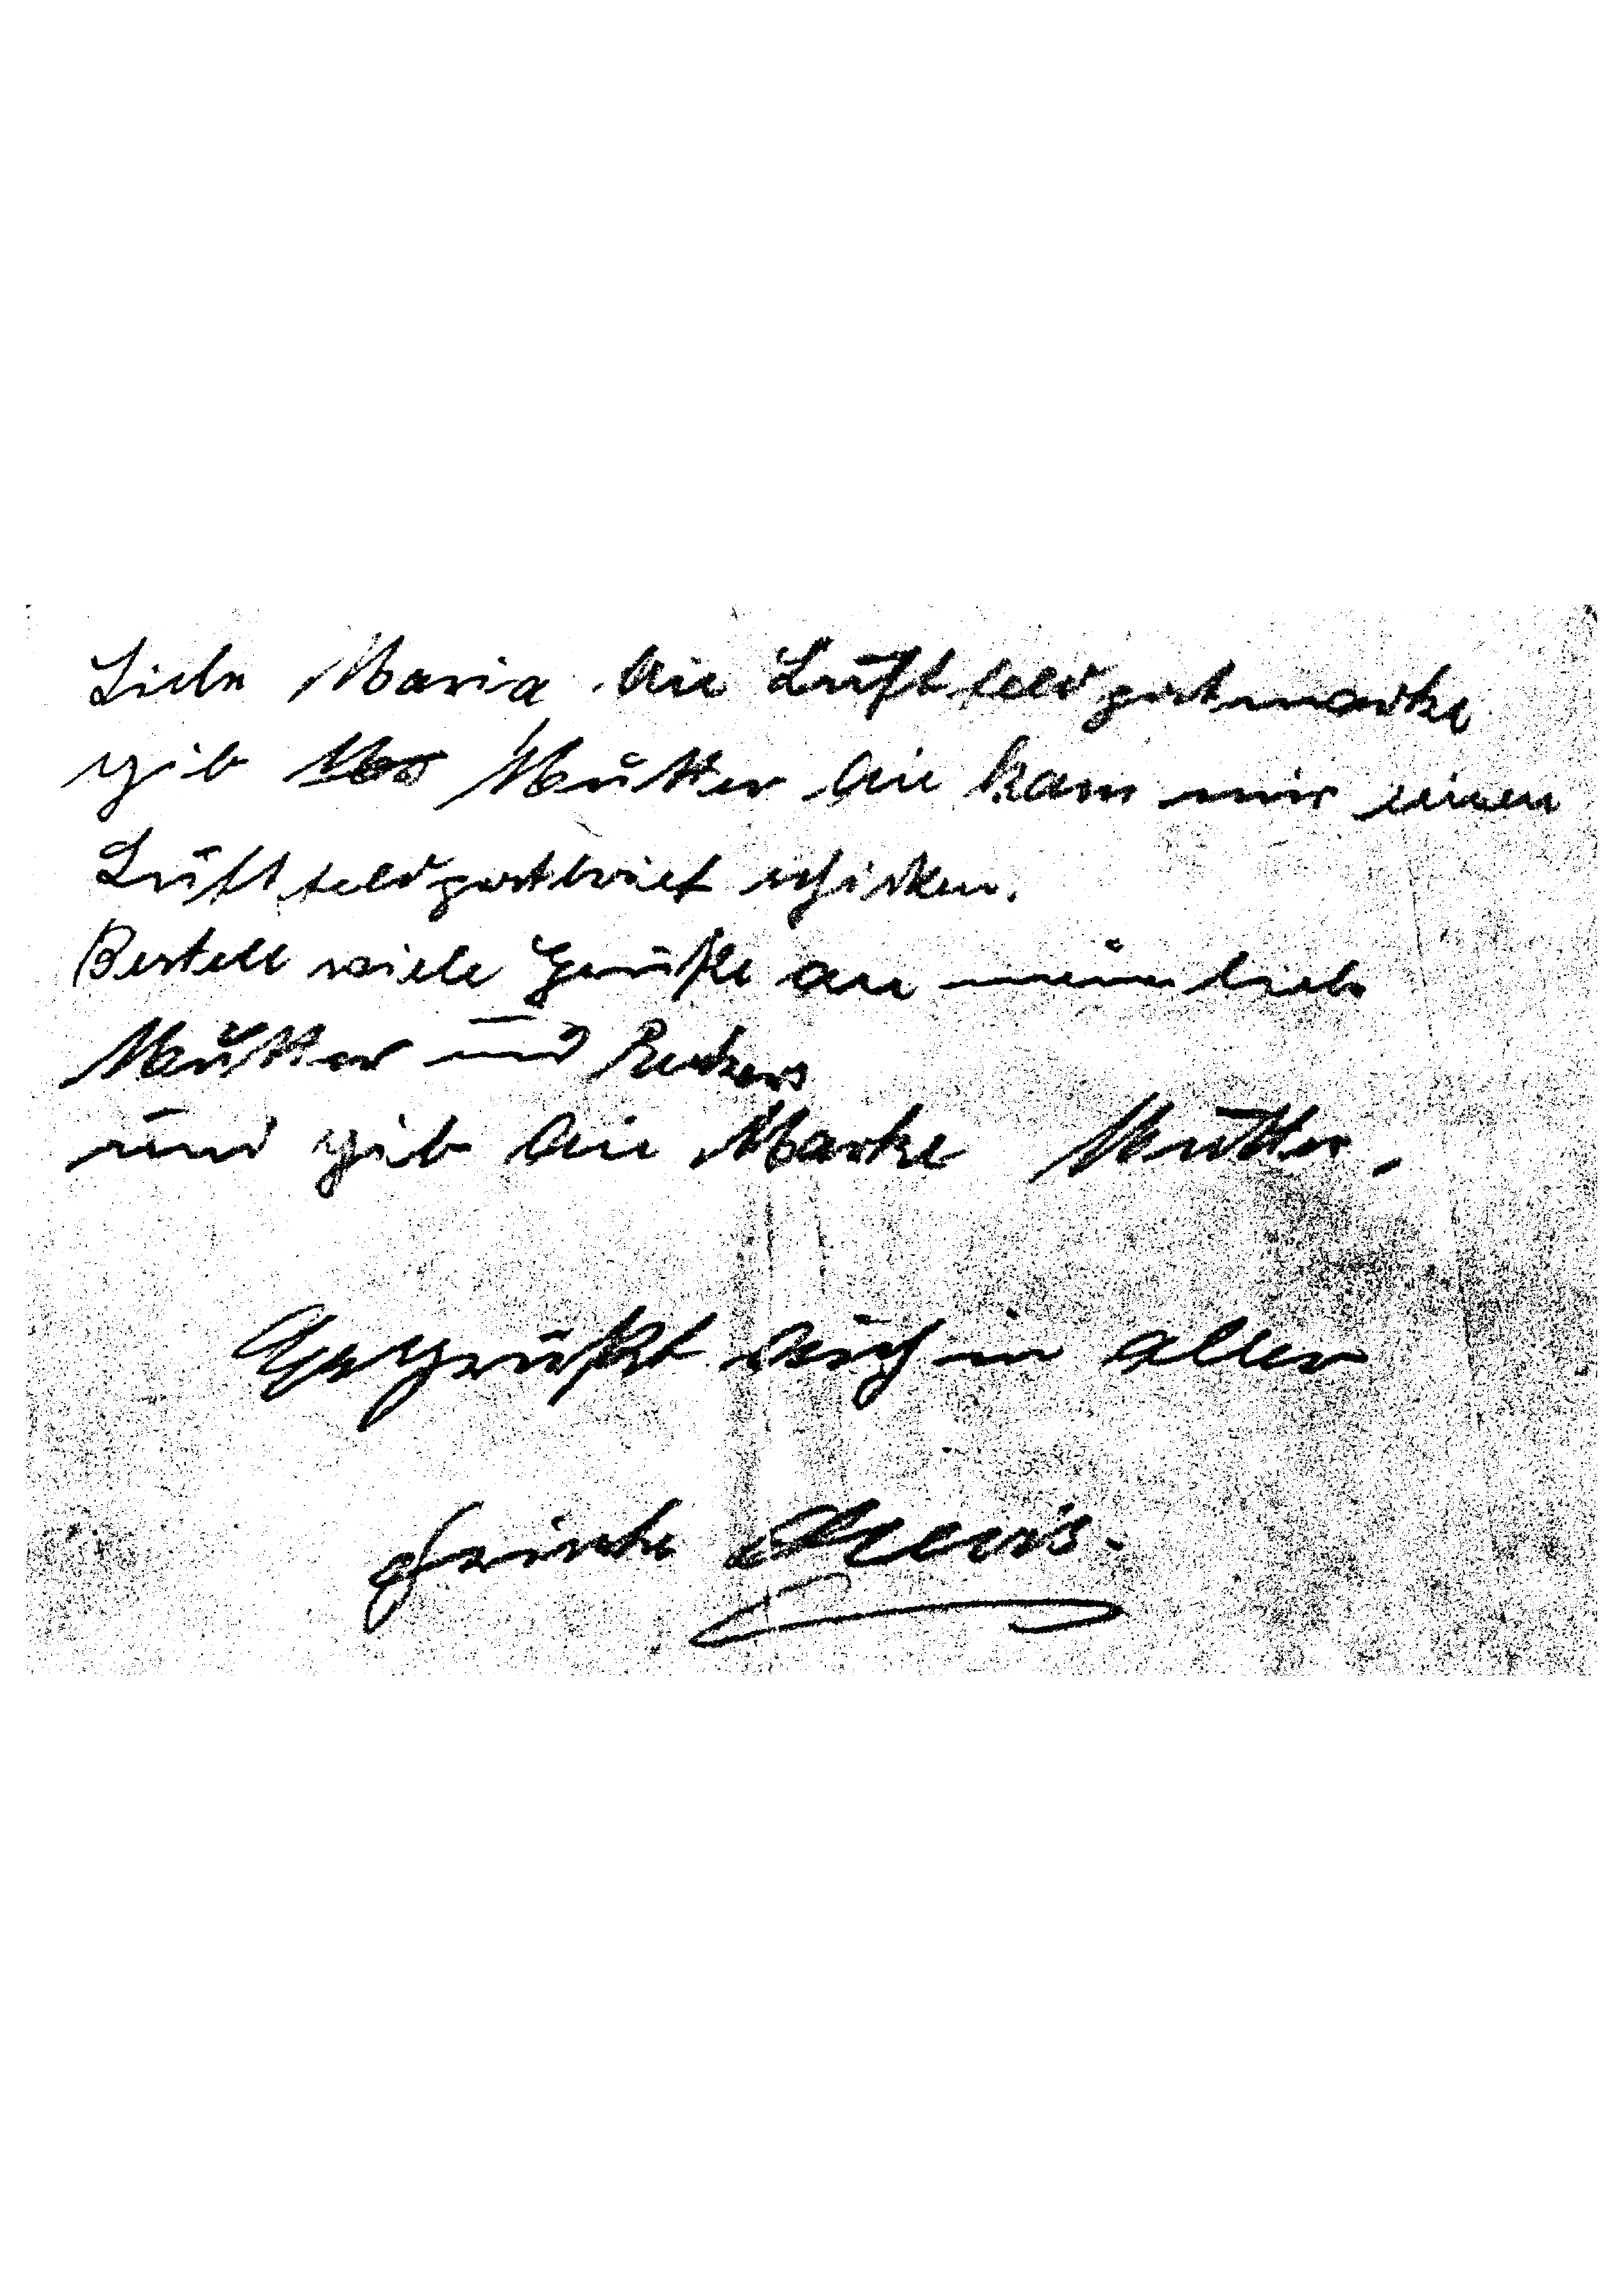 Liebe Maria die Luftfeldpostmarke
gib Mutter die kann mir einen
Luftfeldpostbrief schicken.
Bestell viele Grüße an meine liebe
Mutter und
und gib die Marke Mutter.
Gegrüßt seid ihr in aller
Alois.